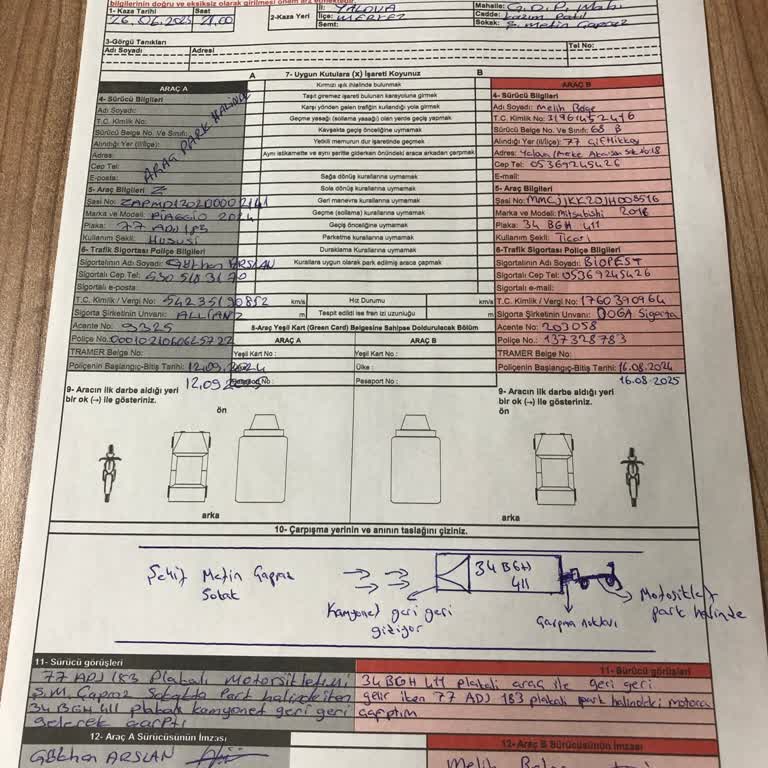 bilgilerinin doğru ve eksiksiz olarak girilmesi önem arz etmektedir.
1- Kaza Tarihi Saat
26.06.2025 21.00
2-Kaza Yeri
İl: YALOVA
İlçe: MERKEZ
Semt:
Mahalle: G.O.P. Mah.
Cadde: Kazım
Sokak: Ş. Metin Çapraz
3-Görgü Tanıkları
Adı Soyadı Adresi Tel No:
A 7- Uygun Kutulara (X) İşareti Koyunuz B
ARAÇ A
4- Sürücü Bilgileri
Adı Soyadı:
T.C. Kimlik No:
Sürücü Belge No. Ve Sınıfı:
Alındığı Yer (il/ilçe):
Adres:
Cep Tel:
E-posta:
ARAÇ PARK HALİNDE
5- Araç Bilgileri
Şasi No: ZAPMD1202D0002141
Marka ve Model: PİAGGİO 2024
Plaka: 77 ADJ 183
Kullanım Şekli: HUSUSİ
6- Trafik Sigortası Poliçe Bilgileri
Sigortalının Adı Soyadı: Gökhan ARSLAN
Sigortalı Cep Tel:
Sigortalı e-posta:
T.C. Kimlik / Vergi No: 54235190852
Sigorta Şirketinin Unvanı: ALLİANZ
Acente No: 9325
Poliçe No:
TRAMER Belge No:
Poliçenin Başlangıç-Bitiş Tarihi: 12.09.2024
12.09
Kırmızı ışık ihlalinde bulunmak
Taşıt giremez işareti bulunan karayoluna girmek
Karşı yönden gelen trafiğin kullandığı yola girmek
Geçme yasağı (sollama yasağı) olan yerde geçiş yapmak
Kavşakta geçiş önceliğine uymamak
Yetkili memurun dur işaretinde geçmek
Aynı istikamette ve aynı şeritte giderken önündeki araca arkadan çarpmak
Sağa dönüş kurallarına uymamak
Sola dönüş kurallarına uymamak
Geri manevra kurallarına uymamak
Geçme (sollama) kurallarına uymamak
Geçiş önceliğine uymamak
Parketme kurallarına uymamak
Duraklama Kurallarına uymamak
Kurallara uygun olarak park edilmiş araca çarpmak
km/s Hız Durumu km/s
m Tespit edildi ise fren izi uzunluğu m
8-Araç Yeşil Kart (Green Card) Belgesine Sahipse Doldurulacak Bölüm
ARAÇ A ARAÇ B
Yeşil Kart No : Yeşil Kart No :
Ülke :
Pasaport No : Pasaport No :
ARAÇ B
4- Sürücü Bilgileri
Adı Soyadı: Melih Bolge
T.C. Kimlik No: 31961452416
Sürücü Belge No. Ve Sınıfı: 68 B
Alındığı Yer (il/ilçe): 77 Çiftlikköy
Adres: Yalova/Merkez
Cep Tel: 05369245426
E-mail:
5- Araç Bilgileri
Şasi No: MMCJJKK20JH008516
Marka ve Model: Mitsubishi 2018
Plaka: 34 BGH 411
Kullanım Şekli: Ticari
6-Trafik Sigortası Poliçe Bilgileri
Sigortalının Adı Soyadı: BİOPEST
Sigortalı Cep Tel: 05369245426
Sigortalı e-mail:
T.C. Kimlik / Vergi No: 1760390964
Sigorta Şirketinin Unvanı: DOGA Sigorta
Acente No: 203058
Poliçe No.: 137328783
TRAMER Belge No:
Poliçenin Başlangıç-Bitiş Tarihi: 16.08.2024
16.08.2025
9- Aracın ilk darbe aldığı yeri
bir ok (→) ile gösteriniz.
ön
arka
9- Aracın ilk darbe aldığı yeri
bir ok (→) ile gösteriniz.
ön
arka
10- Çarpışma yerinin ve anının taslağını çiziniz.
Şehit Metin Çapraz
Sokak
34 BGH
411
Kamyonet geri geri
gidiyor
Çarpma noktası
Motosiklet
park halinde
11- Sürücü görüşleri
77 ADJ 183 Plakalı Motorsikletimi
Ş.M. Çapraz Sokakta Park halindeiken
34 BGH 411 plakalı kamyonet geri geri
gelerek çarptı
11- Sürücü görüşleri
34 BGH 411 plakalı araç ile geri geri
gelir iken 77 ADJ 183 plakalı park halindeki motora
çarptım
12- Araç A Sürücüsünün İmzası
Gökhan ARSLAN
12- Araç B Sürücüsünün İmzası
Melih Bolge